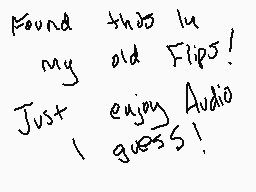 Found this in
my old Flips!
Just enjoy Audio
I guess!